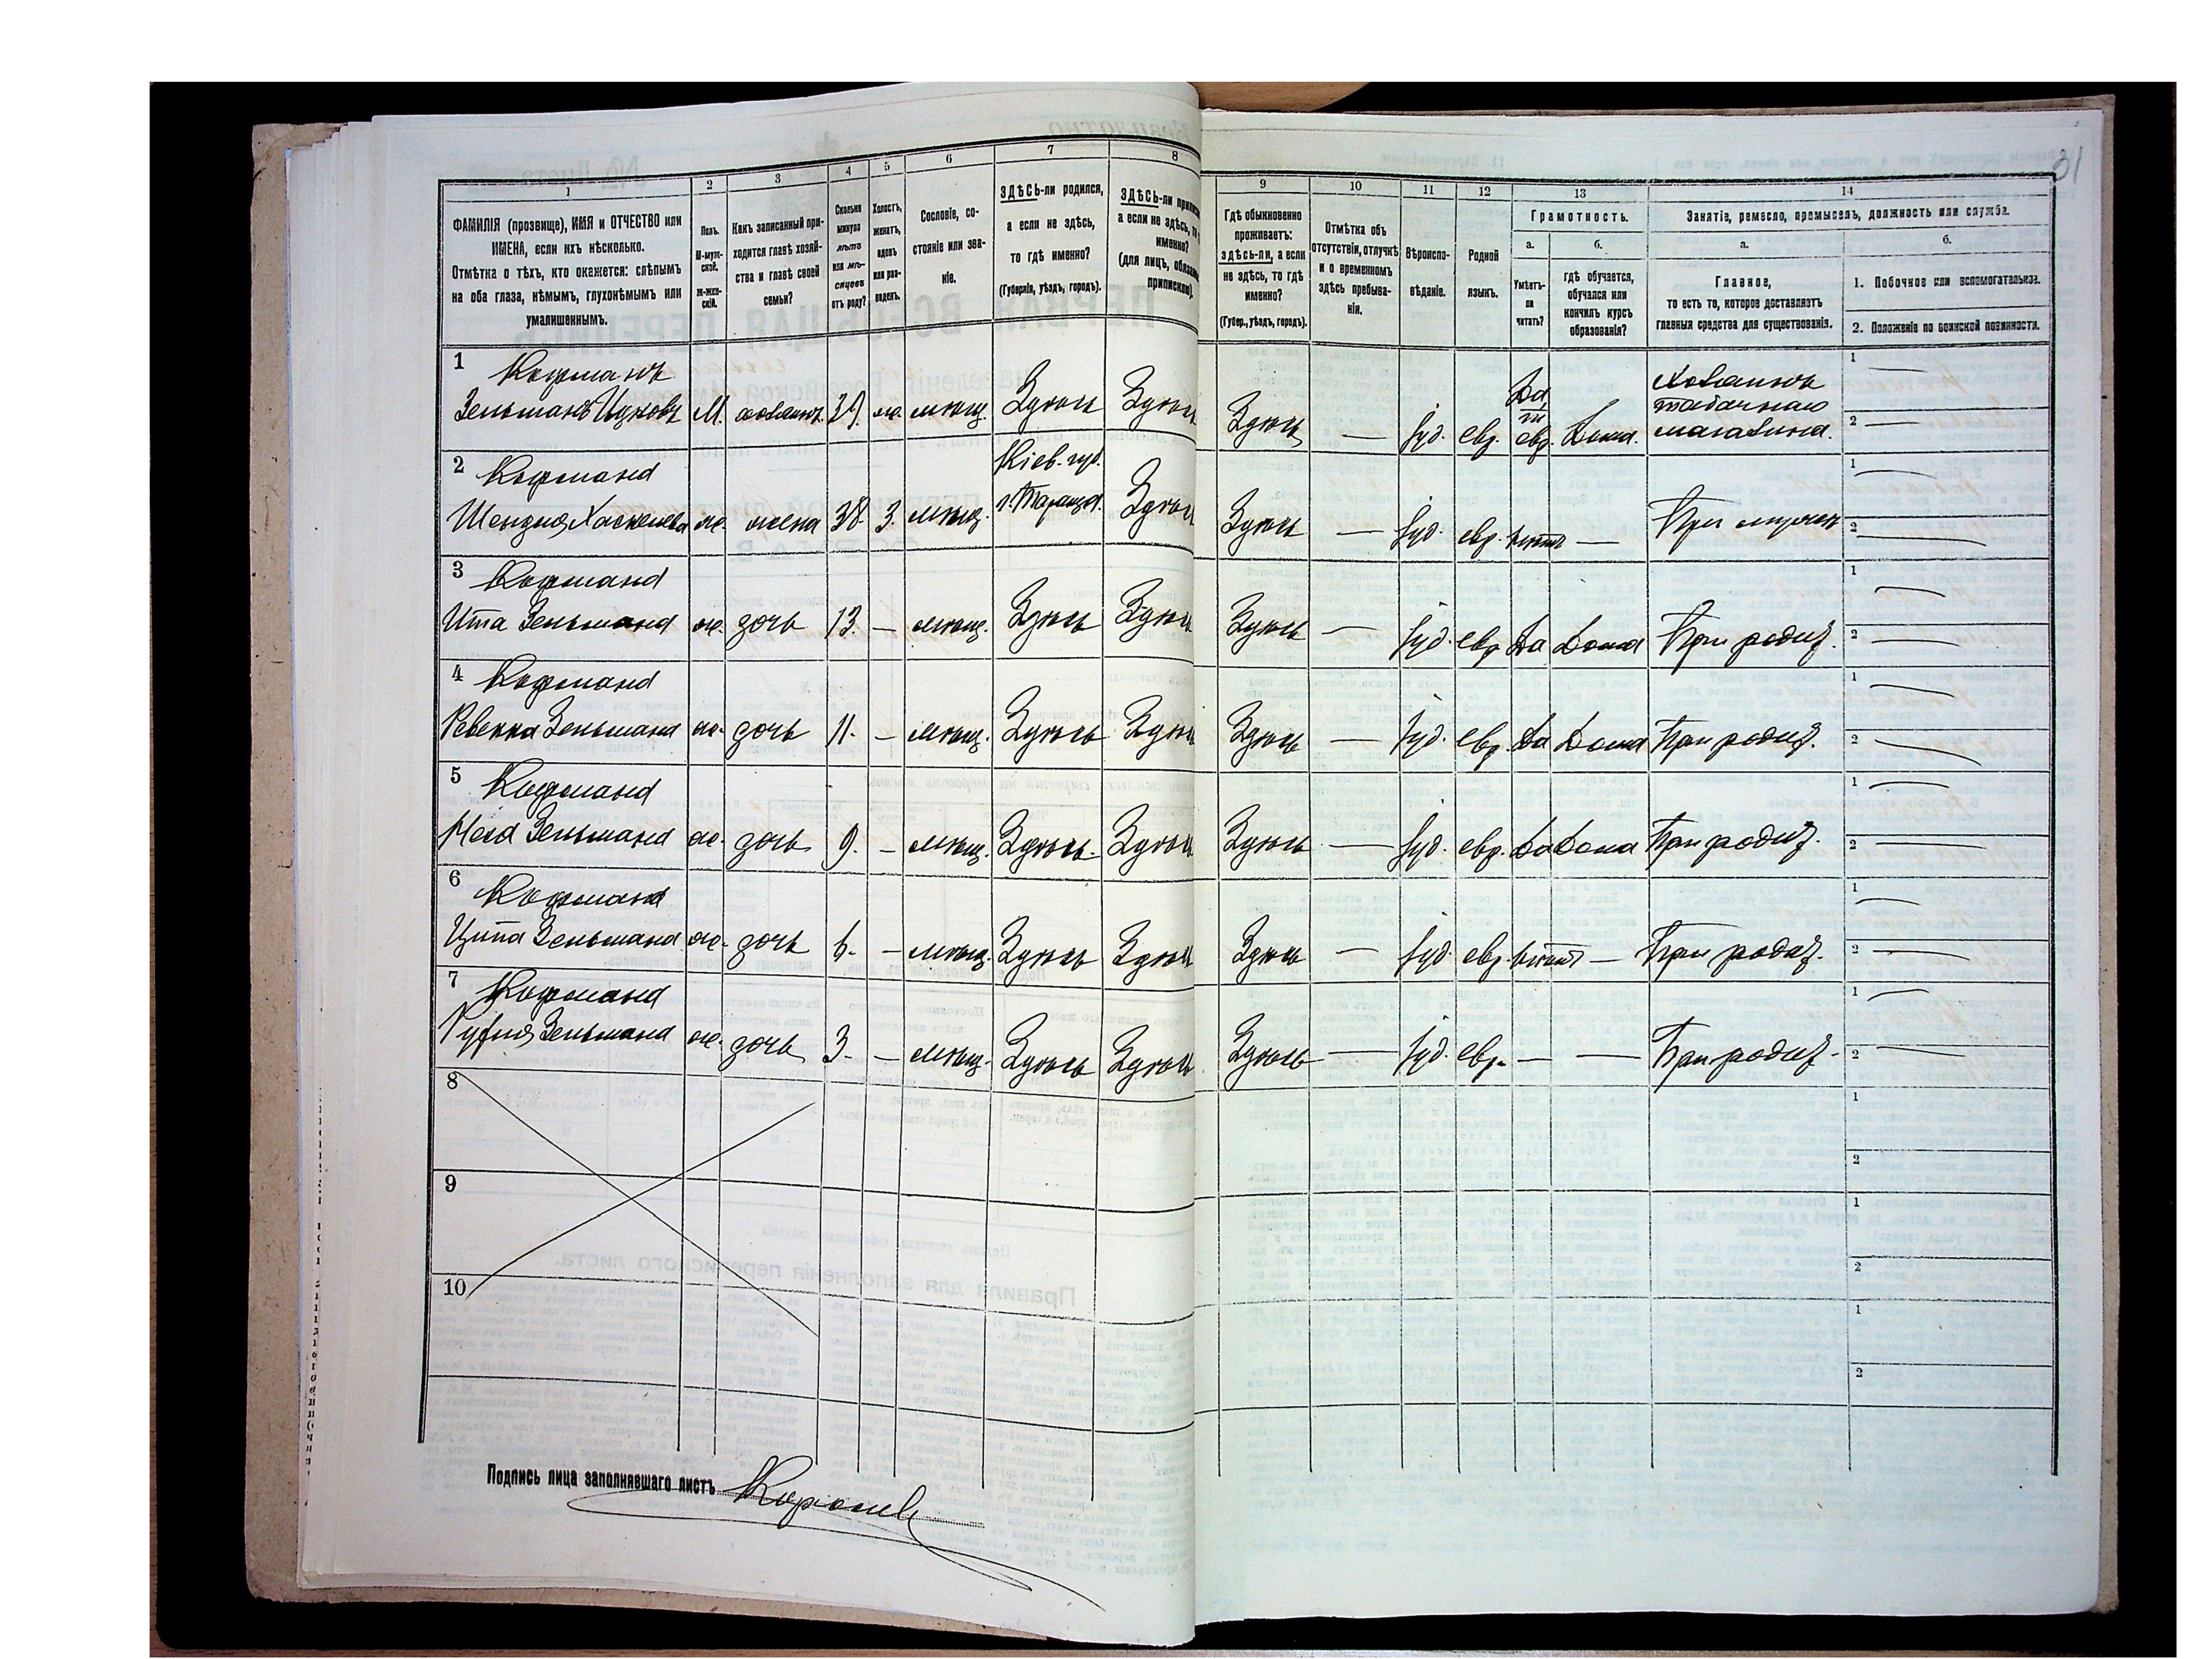 31
1 2 3 4 5 6 7 8 9 10 11 12 13 14
ФАМИЛІЯ (прозвище), ИМЯ и ОТЧЕСТВО или
ИМЕНА, если ихъ нѣсколько.
Отмѣтка о тѣхъ, кто окажется: слѣпымъ
на оба глаза, нѣмымъ, глухонѣмымъ или
умалишеннымъ.
Полъ.
М-муж-
ской.
ж-жен-
скій.
Какъ записанный при-
ходится главѣ хозяй-
ства и главѣ своей
семьи?
Сколько
минуло
лѣтъ
или мѣ-
сяцевъ
отъ роду?
Холостъ,
женатъ,
вдовъ
или раз-
веденъ.
Сословіе, со-
стояніе или зва-
ніе.
ЗДѢСЬ-ли родился,
а если не здѣсь,
то гдѣ именно?
(Губернія, уѣздъ, городъ).
ЗДѢСЬ-ли
а если не здѣсь, то
именно?
(для лицъ,
припискою).
Гдѣ обыкновенно
проживаетъ:
здѣсь-ли, а если
не здѣсь, то гдѣ
именно?
(Губер., уѣздъ, городъ).
Отмѣтка объ
отсутствіи, отлучкѣ
и о временномъ
здѣсь пребыва-
ніи.
Вѣроиспо-
вѣданіе.
Родной
языкъ.
Грамотность.
а. б.
Умѣетъ-
ли
читать?
гдѣ обучается,
обучался или
кончилъ курсъ
образованія?
Занятіе, ремесло, промыселъ, должность или служба.
а. б.
Главное,
то есть то, которое доставляетъ
главныя средства для существованія.
1. Побочное или вспомогательное.
2. Положеніе по воинской повинности.
1 Кофманъ
Зельманъ Ицковъ М. хозяинъ 39. ж. мѣщ. Здѣсь Здѣсь Здѣсь — іуд. евр. Да евр. Дома. Хозяинъ
табачнаго
магазина.
1 — 2 —
2 Кофманъ Кіев. губ.
Хаскелева ж. жена 38. З. мѣщ. г. Тараща. Здѣсь Здѣсь — іуд. евр. нѣтъ — При мужѣ
1 — 2 —
3 Кофманъ
Ита Зельмана ж. дочь 13. — мѣщ. Здѣсь Здѣсь Здѣсь — іуд. евр. Да Дома При родит.
1 — 2 —
4 Кофманъ
Ревекка Зельмана ж. дочь 11. — мѣщ. Здѣсь Здѣсь Здѣсь — іуд. евр. Да Дома При родит.
1 — 2 —
5 Кофманъ
Зельмана ж. дочь 9. — мѣщ. Здѣсь Здѣсь Здѣсь — іуд. евр. Да Дома При родит.
1 — 2 —
6 Кофманъ
Зельмана ж. дочь 6. — мѣщ. Здѣсь Здѣсь Здѣсь — іуд. евр. нѣтъ — При родит.
1 — 2 —
7 Кофманъ
Зельмана ж. дочь 3. — мѣщ. Здѣсь Здѣсь Здѣсь — іуд. евр. — — При родит.
1 — 2 —
8 1 2
9 1 2
10 1 2
Подпись лица заполнявшаго листъ